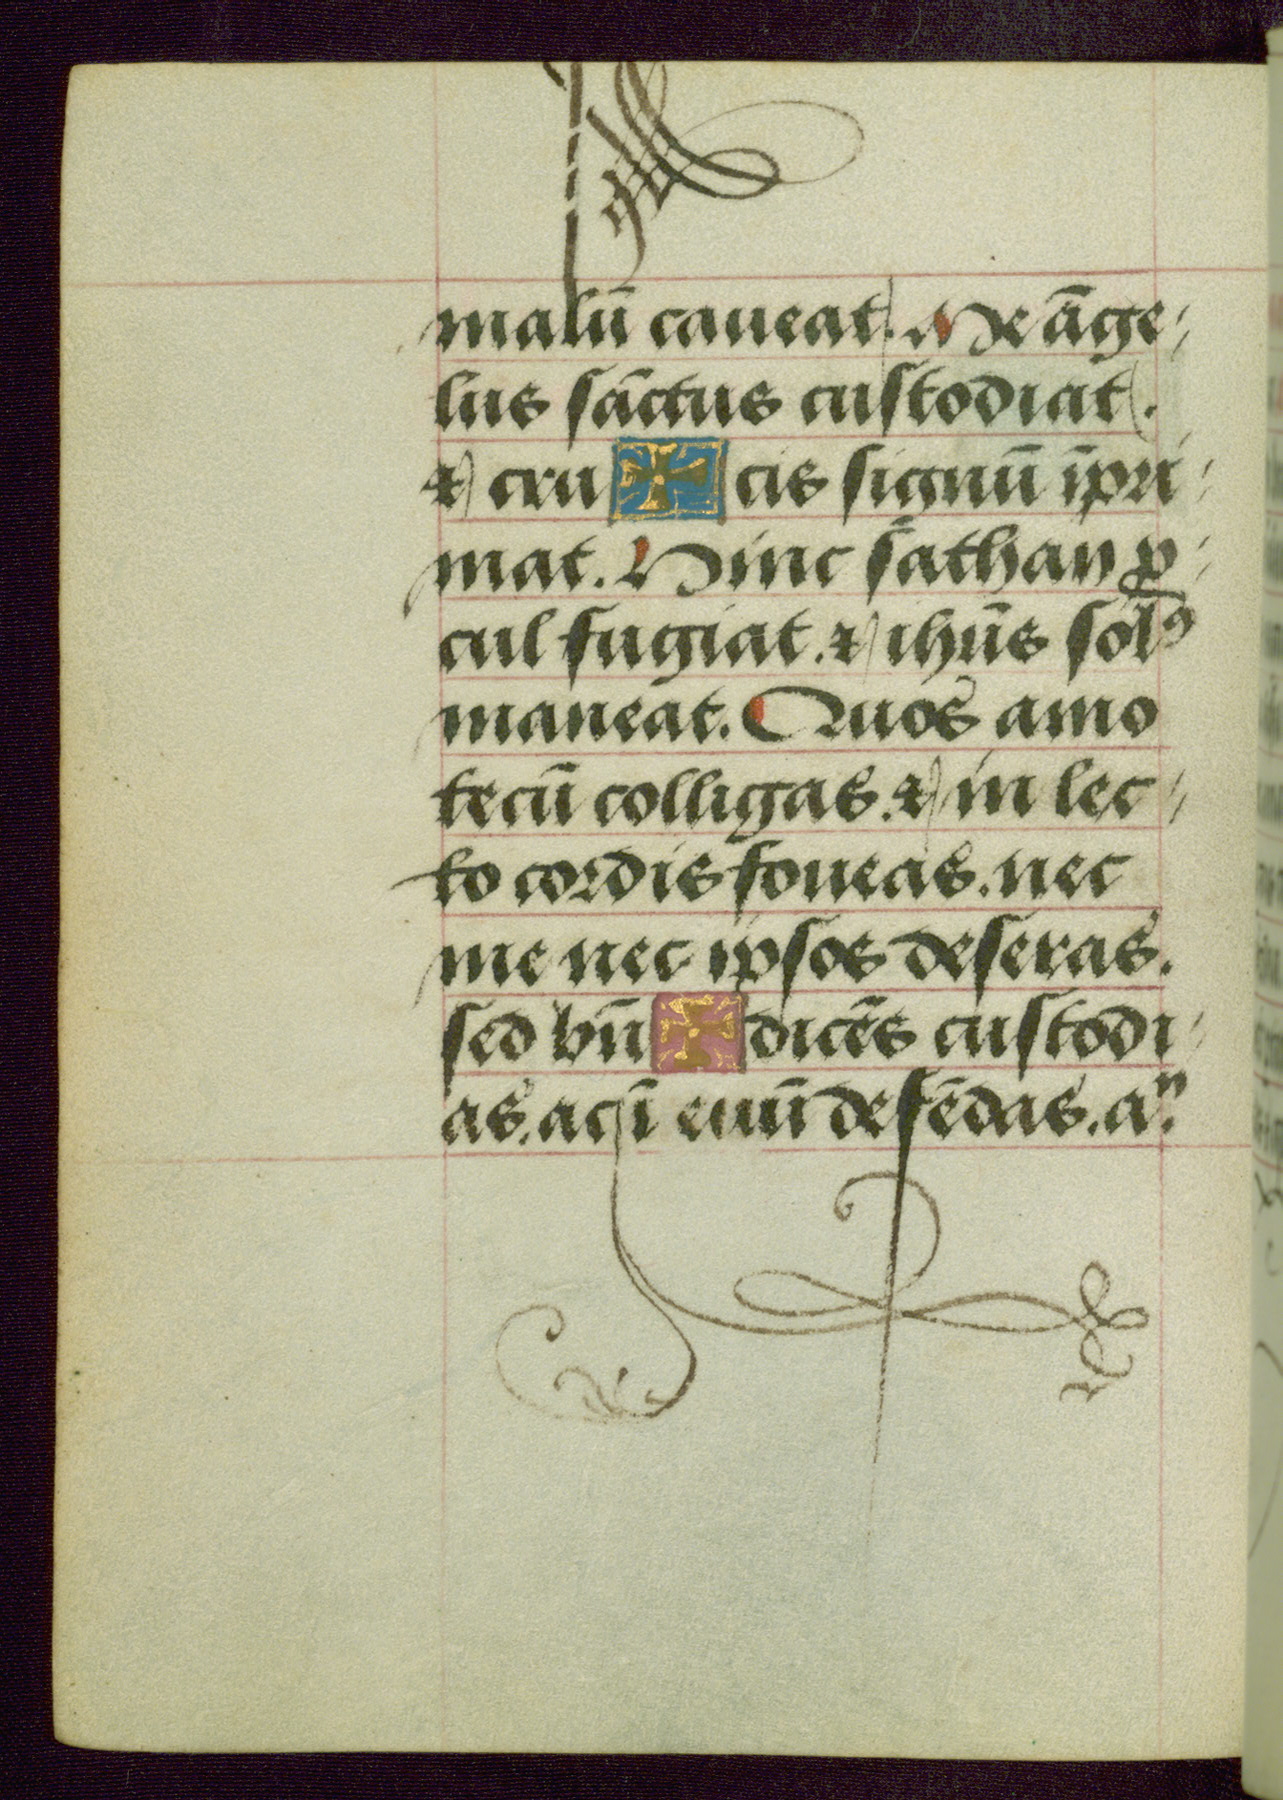 malū caueat. Me āge-
lus sāctus custodiat.
⁊ cru ✠ cis signū īpri-
mat. Hinc sathan ꝓ-
cul fugiat. ⁊ ihūs solꝰ
maneat. Quos amo
tecū colligas. ⁊ in lec-
to cordis foueas. nec
me nec ipsos deseras.
sed bn̄ ✠ dicēs custodi-
as. ac ī euū defēdas. aⁿ.